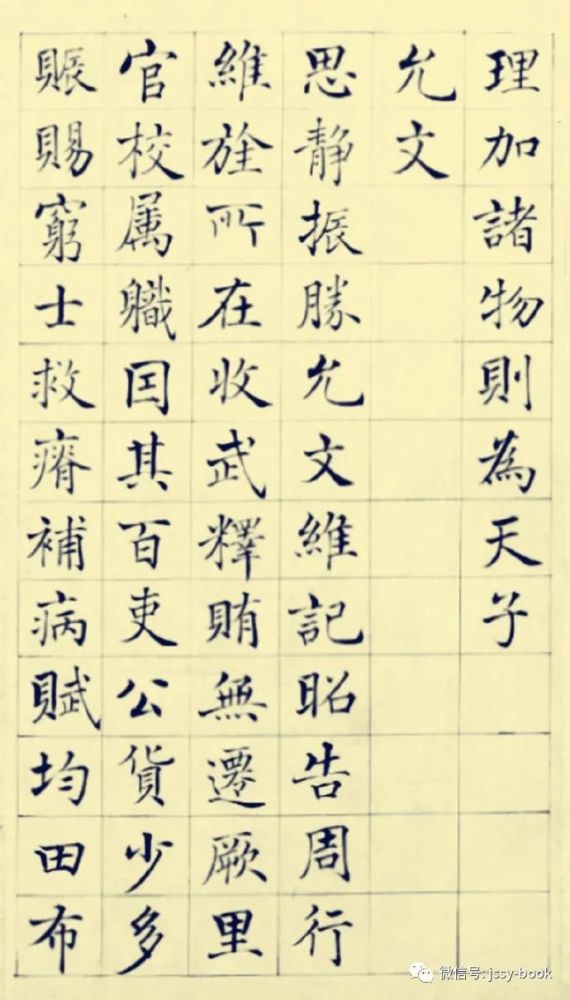 理加諸物則為天子
允文
思静振勝允文維記昭告周行
維旌所在收武釋賄無遷厥里
官校属職因其百吏公貨少多
賑賜窮士救瘠補病賦均田布
微信号: jssy-book